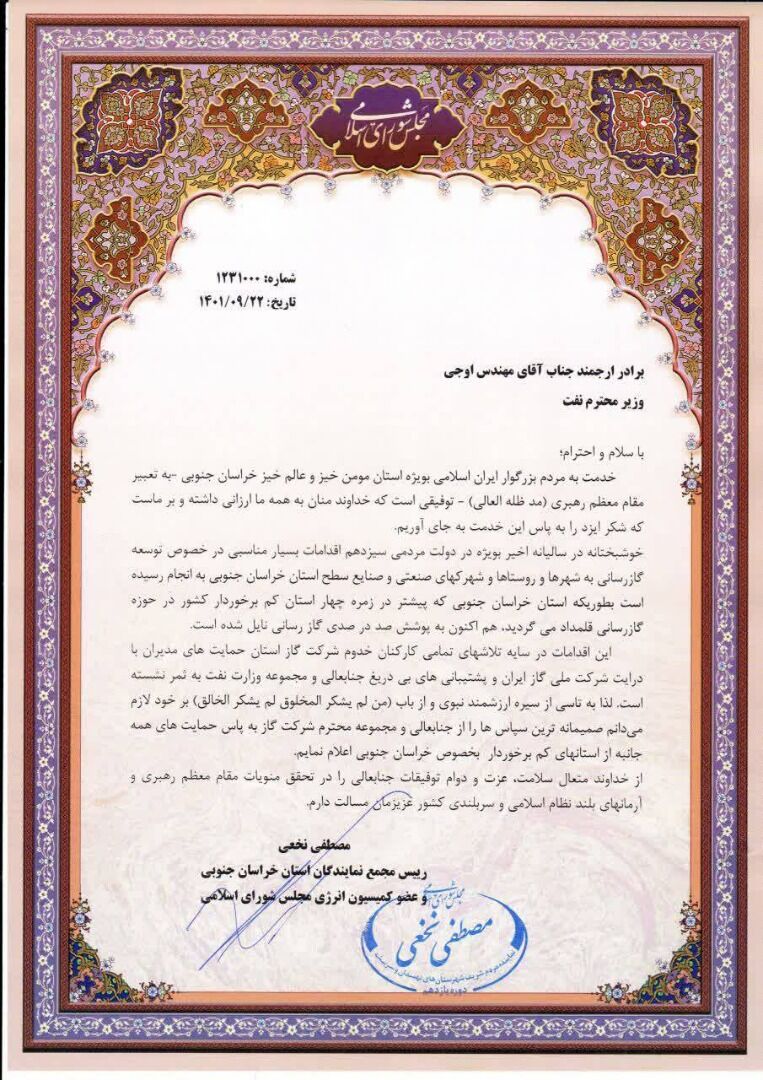 مجلس شورای اسلامی
شماره: ۱۲۳۱۰۰۰
تاریخ: ۱۴۰۱/۰۹/۲۲
برادر ارجمند جناب آقای مهندس اوجی
وزیر محترم نفت
با سلام و احترام؛
خدمت به مردم بزرگوار ایران اسلامی بویژه استان مومن خیز و عالم خیز خراسان جنوبی -به تعبیر
مقام معظم رهبری (مد ظله العالی) - توفیقی است که خداوند منان به همه ما ارزانی داشته و بر ماست
که شکر ایزد را به پاس این خدمت به جای آوریم.
خوشبختانه در سالیانه اخیر بویژه در دولت مردمی سیزدهم اقدامات بسیار مناسبی در خصوص توسعه
گازرسانی به شهرها و روستاها و شهرکهای صنعتی و صنایع سطح استان خراسان جنوبی به انجام رسیده
است بطوریکه استان خراسان جنوبی که پیشتر در زمره چهار استان کم برخوردار کشور در حوزه
گازرسانی قلمداد می گردید، هم اکنون به پوشش صد در صدی گاز رسانی نایل شده است.
این اقدامات در سایه تلاشهای تمامی کارکنان خدوم شرکت گاز استان حمایت های مدیران با
درایت شرکت ملی گاز ایران و پشتیبانی های بی دریغ جنابعالی و مجموعه وزارت نفت به ثمر نشسته
است. لذا به تاسی از سیره ارزشمند نبوی و از باب (من لم یشکر المخلوق لم یشکر الخالق) بر خود لازم
می‌دانم صمیمانه ترین سپاس ها را از جنابعالی و مجموعه محترم شرکت گاز به پاس حمایت های همه
جانبه از استانهای کم برخوردار بخصوص خراسان جنوبی اعلام نمایم.
از خداوند متعال سلامت، عزت و دوام توفیقات جنابعالی را در تحقق منویات مقام معظم رهبری و
آرمانهای بلند نظام اسلامی و سربلندی کشور عزیزمان مسالت دارم.
مصطفی نخعی
رییس مجمع نمایندگان استان خراسان جنوبی
و عضو کمیسیون انرژی مجلس شورای اسلامی
مجلس شورای اسلامی
مصطفی نخعی
نماینده مردم شریف شهرستان های نهبندان و سربیشه
دوره یازدهم